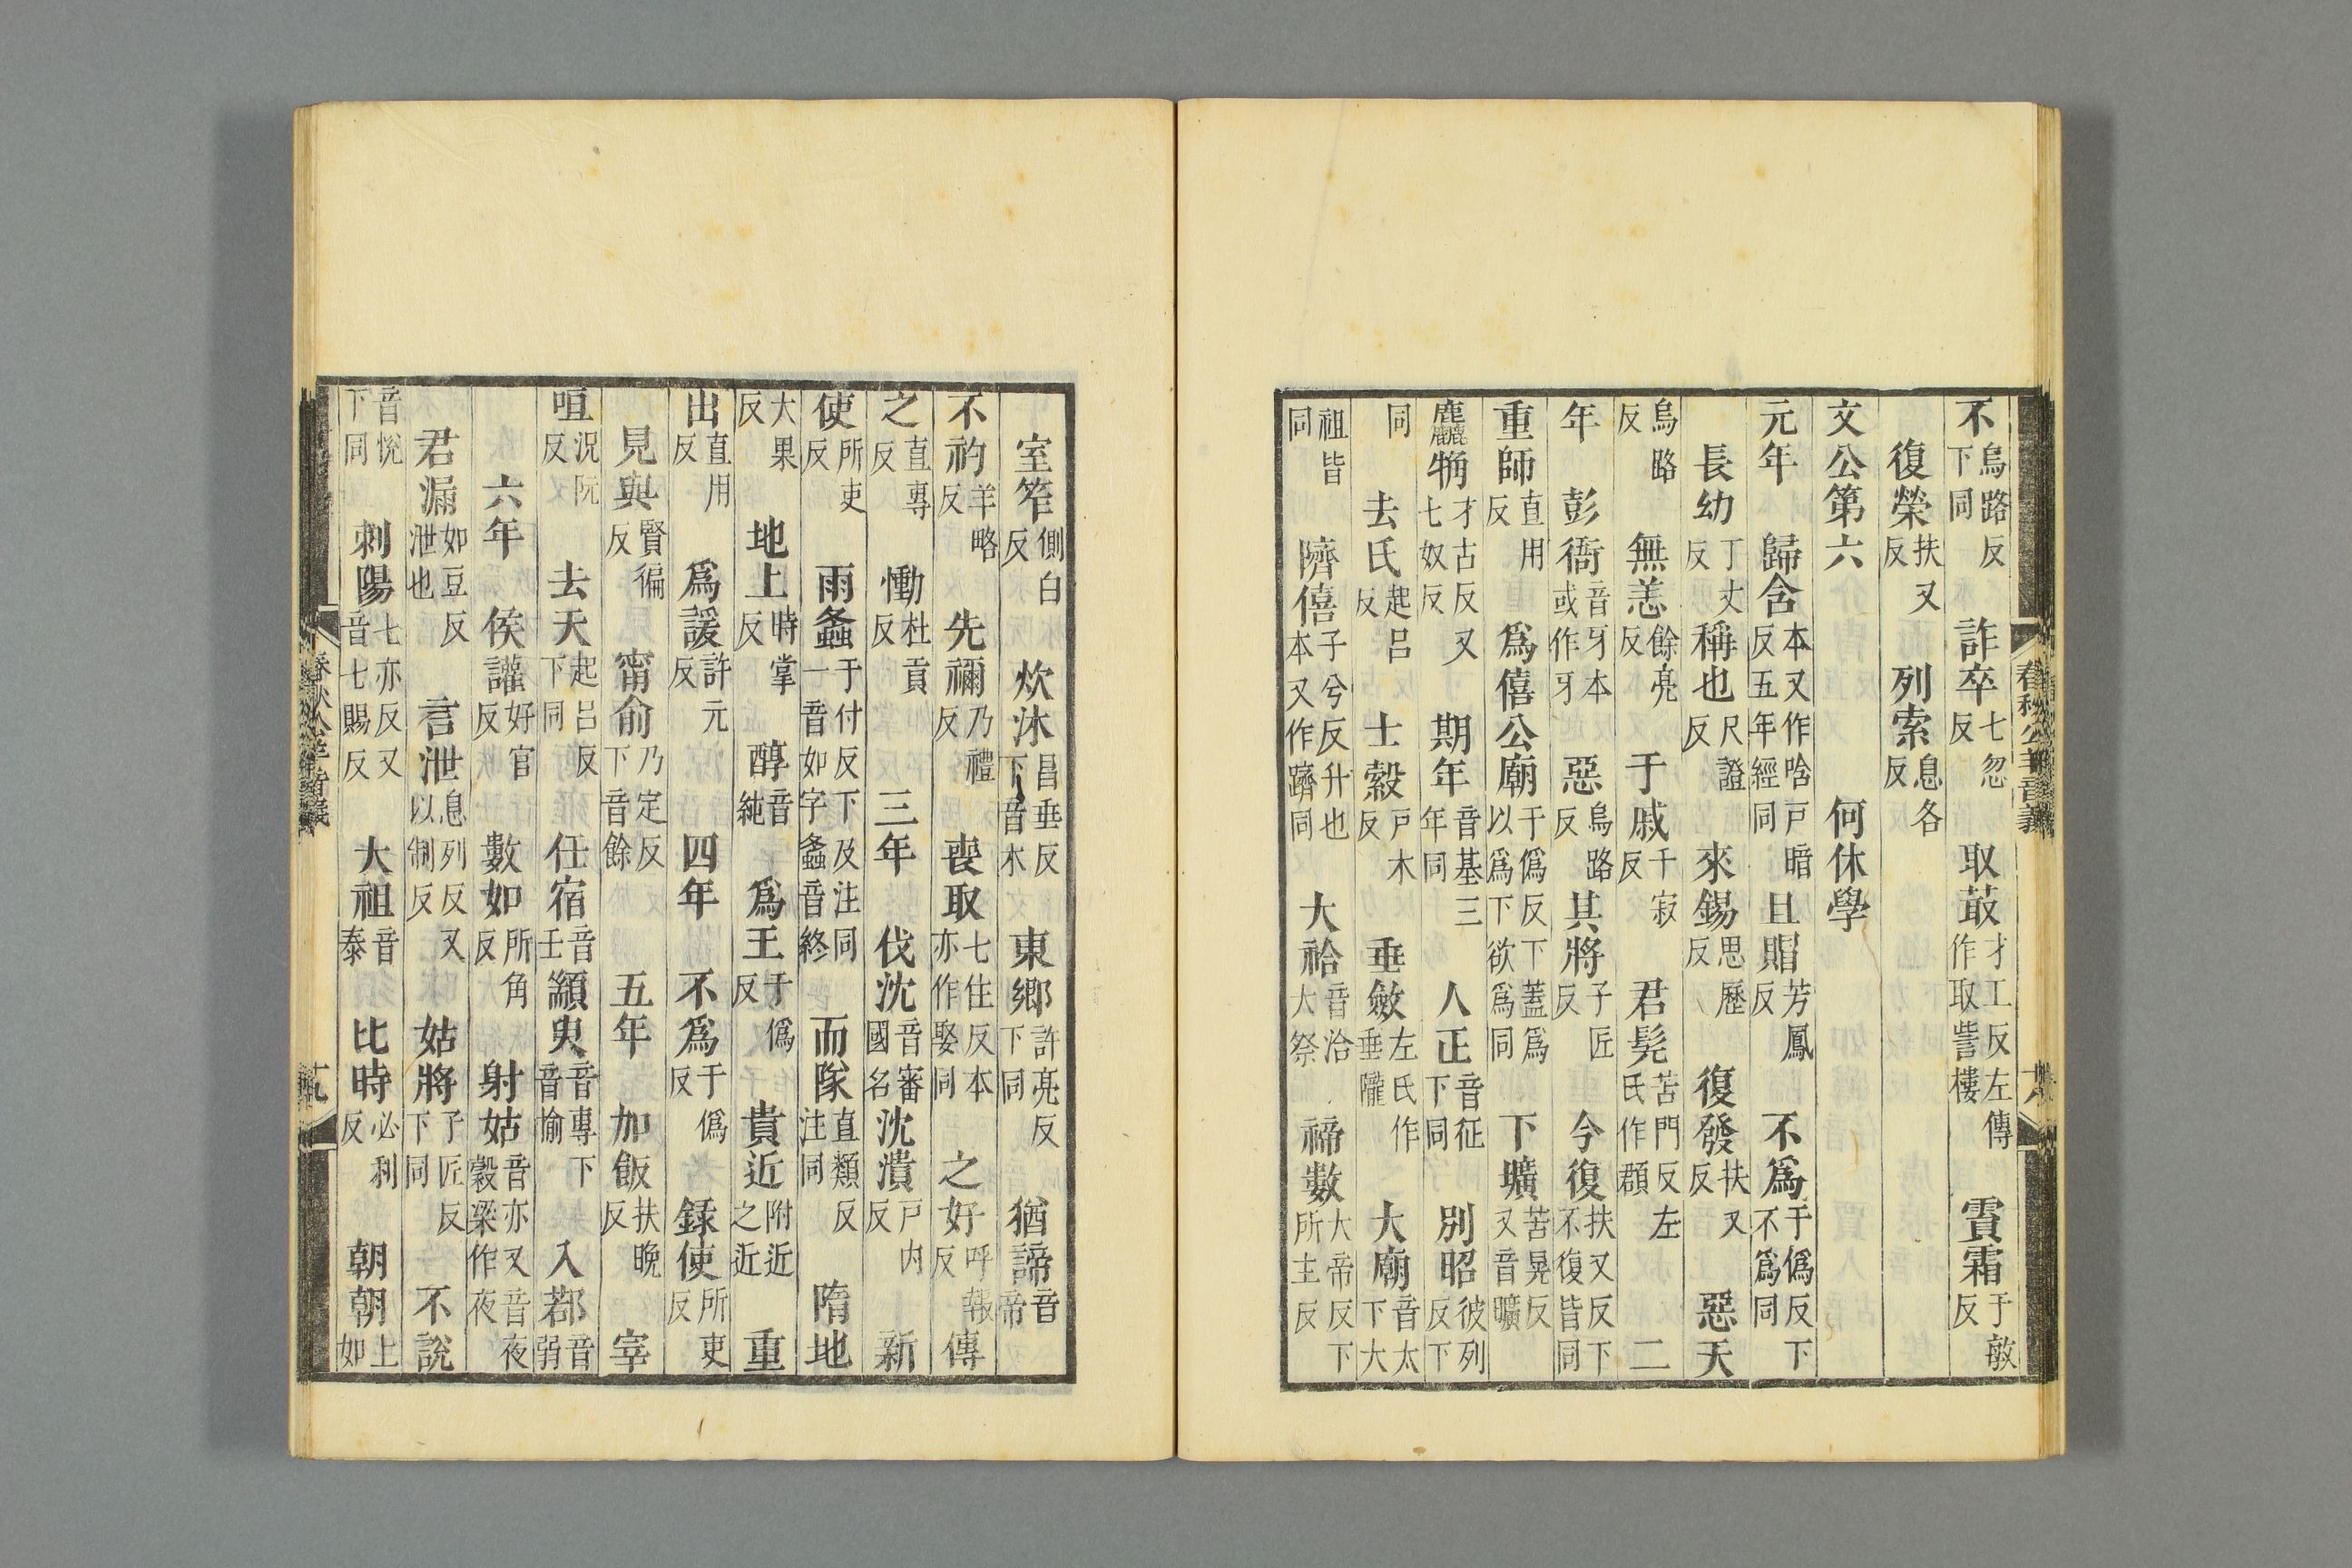 不烏路反下同詐卒七忽反取菆才工反左傳作取訾樓霣霜于敏反
復榮扶又反列索息各反
文公第六何休學
元年歸含本又作唅戶暗反五年經同且賵芳鳳反不爲于僞反下不爲同
長幼丁丈反稱也尺證反來錫思歷反復發扶又反惡天
烏路反無恙餘亮反于戚千寂反君髡苦門反左氏作頵二
年彭衙音牙本或作牙惡烏路反其將子匠反今復扶又反下不復皆同
重師直用反爲僖公廟于僞反下蓋爲以爲下欲爲同下曠苦晃反又音曠
麤觕才古反又七奴反期年音基三年同人正音征下同別昭彼列反下
同去氏起呂反士縠戶木反垂斂左氏作垂隴大廟音太下大
祖皆同隮僖子兮反升也本又作躋同大祫音洽大祭禘數大帝反下所主反
室笮側白反炊沐昌垂反下音木東鄉許亮反下同猶諦音帝
不礿羊略反先禰乃禮反喪取七住反本亦作娶同之好呼報反傳
之直專反慟杜貢反三年伐沈音審國名沈潰戶內反新
使所吏反雨螽于付反下及注同一音如字螽音終而隊直類反注同隋地
大果反地上時掌反醇音純爲王于僞反貴近附近之近重
出直用反爲諼許元反四年不爲于僞反錄使所吏反
見與賢徧反甯俞乃定反下音餘五年加飯扶晚反宰
咺況阮反去天起呂反下同任宿音壬顓臾音專下音愉入鄀音弱
六年侯讙好官反數如所角反射姑音亦又音夜穀梁作夜
君漏如豆反泄也言泄息列反又以制反姑將子匠反下同不說
音悅下同刺陽七亦反又音七賜反大祖音泰比時必利反朝朝上如
春秋公羊音義